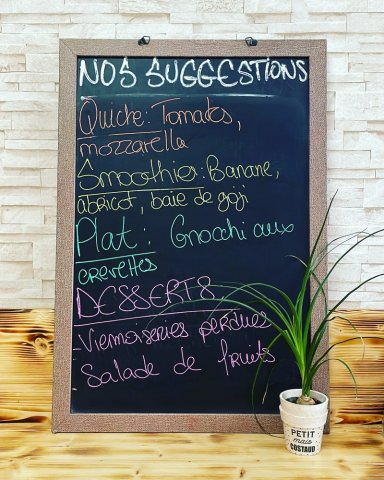 NOS SUGGESTIONS
Quiche: Tomates,
mozzarella
Smoothies: Banane,
abricot, baie de goji
Plat : Gnocchi aux
crevettes
DESSERTS
- Viennoiseries perdues
Salade de fruits
PETIT
mais
COSTAUD